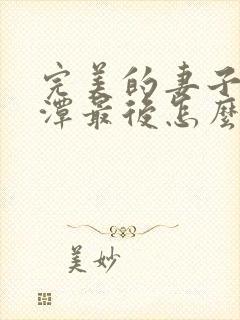 完美的妻子
潭最后怎麼
美妙